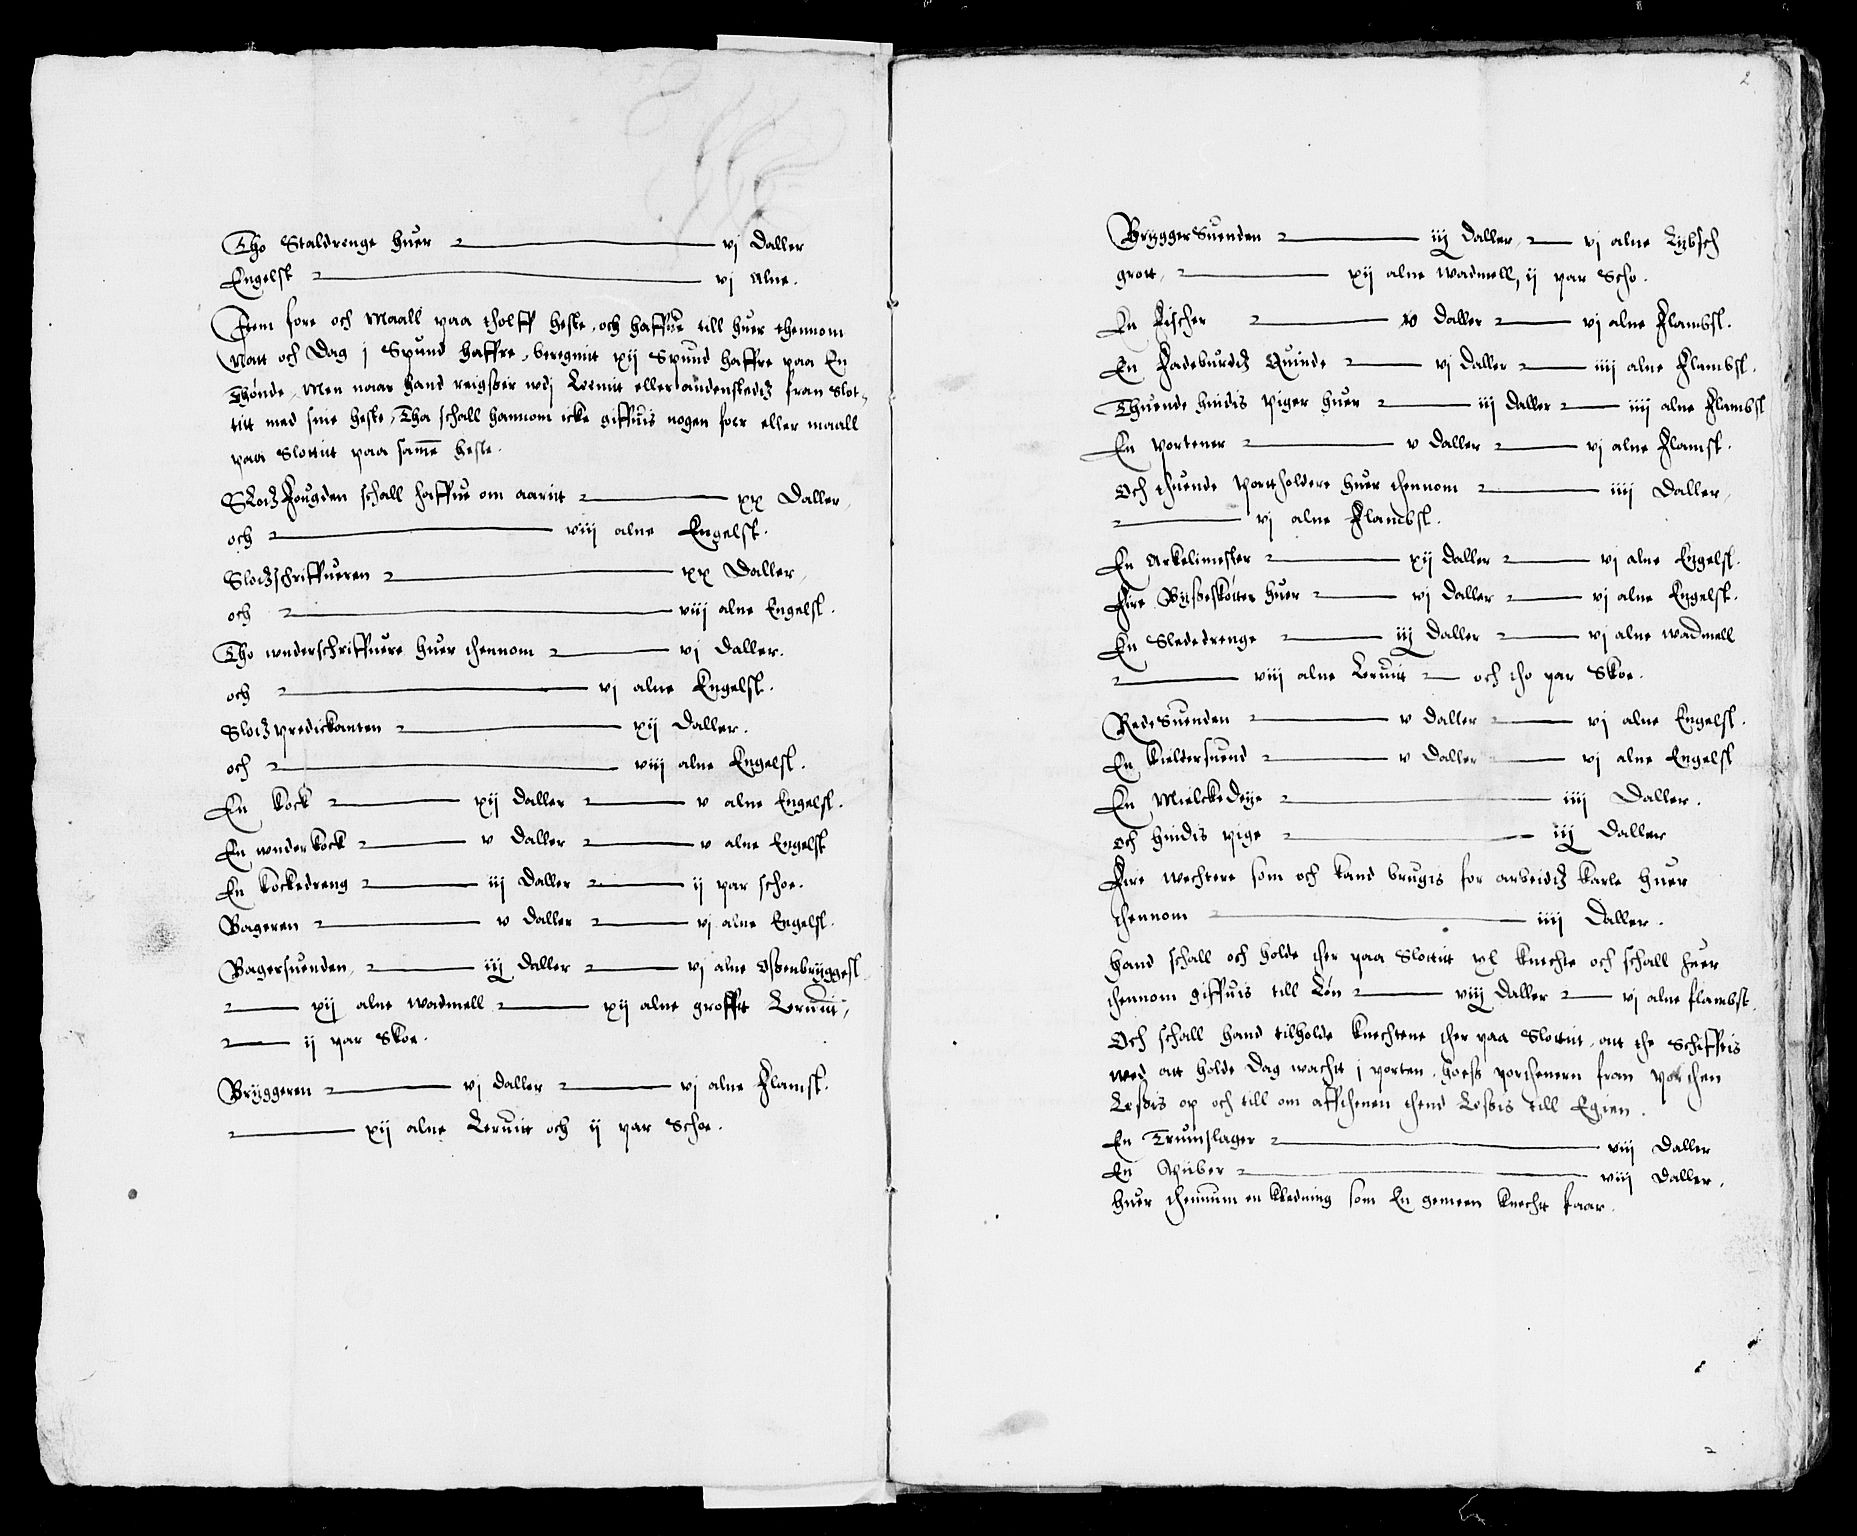 Tho Staldrenge huer — vj Daller
Engelst — vj Alne.
Item fore och Maall paa tholff heste, och haffue till huer thennom
Natt och Dag j Spund haffre, beregnitt xij Spund haffre paa En
Thønde, Men naar hand reigsser wdj Leenitt eller andenstedtz fran Slot-
titt med sine heste, Tha schall hannom icke giffuis nogen foer eller maall
paa Slottitt paa same heste.
Slotz Fougden schall haffue om aaritt — xx Daller,
och — viij alne Engelst.
Slotzschriffueren — xx Daller,
och — viij alne Engelst.
Tho wnderschriffuere huer thennom — vj Daller.
och — vj alne Engelst.
Slotzpredickanten — xij Daller.
och — viij alne Engelst.
En Kock — xij Daller — v alne Engelst.
En wnderkock — v Daller — v alne Engelst
En Kockedreng — iij Daller — ij par schoe.
Bageren — v Daller — vj alne Engelst.
Bagersuenden, — iij Daller — vj alne Ossenbryggest.
— xij alne wadmell — xij alne groffit Leruitt,
— ij par Skoe.
Bryggeren — vj Daller — vj alne Flamst.
— xij alne Leruitt och ij par Schoe.
2
BryggerSuenden — iij Daller, — vj alne Lybsch
grott, — xij alne wadmell, ij par Scho.
En Fischer — v Daller — vj alne Flambst.
En Fadeburdtz Quinde — vj Daller — iiij alne Flambst.
Thuende hindis piger huer — iij Daller — iiij alne Flambst
En portener — v Daller — vj alne Flamst.
Och thuende portholdere huer thennom — iiij Daller,
— vj alne Flambst.
En Arkelimester — xij Daller — vj alne Engelst.
Fire Bysseskötter huer — vj Daller — vj alne Engelst.
En Slededrenge — iij Daller — vj alne wadmell
— viij alne Leruitt — och tho par Skoe.
RedeSuenden — v Daller — vj alne Engelst.
En Kieldersuend — v Daller — vj alne Engelst
En MielckeDeye — iiij Daller.
och hindis pige — iij Daller
Fire wechtere som och kand brugis for arbeidtz karle huer
thennom — iiij Daller.
Hand schall och holde ther paa Slottitt xl Knechte och schall huer
thennom giffuis till Løn — viij Daller — vj alne flambst.
Och schall hand tilholde Knechtene ther paa Slottitt, att the Schifftis
wed att holde Dag wachtt j porten, hoess portenern fran porthen
Lessis op och till om afftthenen thend Lessis till Egien.
En Trumslager — viij Daller
En Piiber — viij Daller.
huer thennum en kledning som En gemeen Knecht faar.